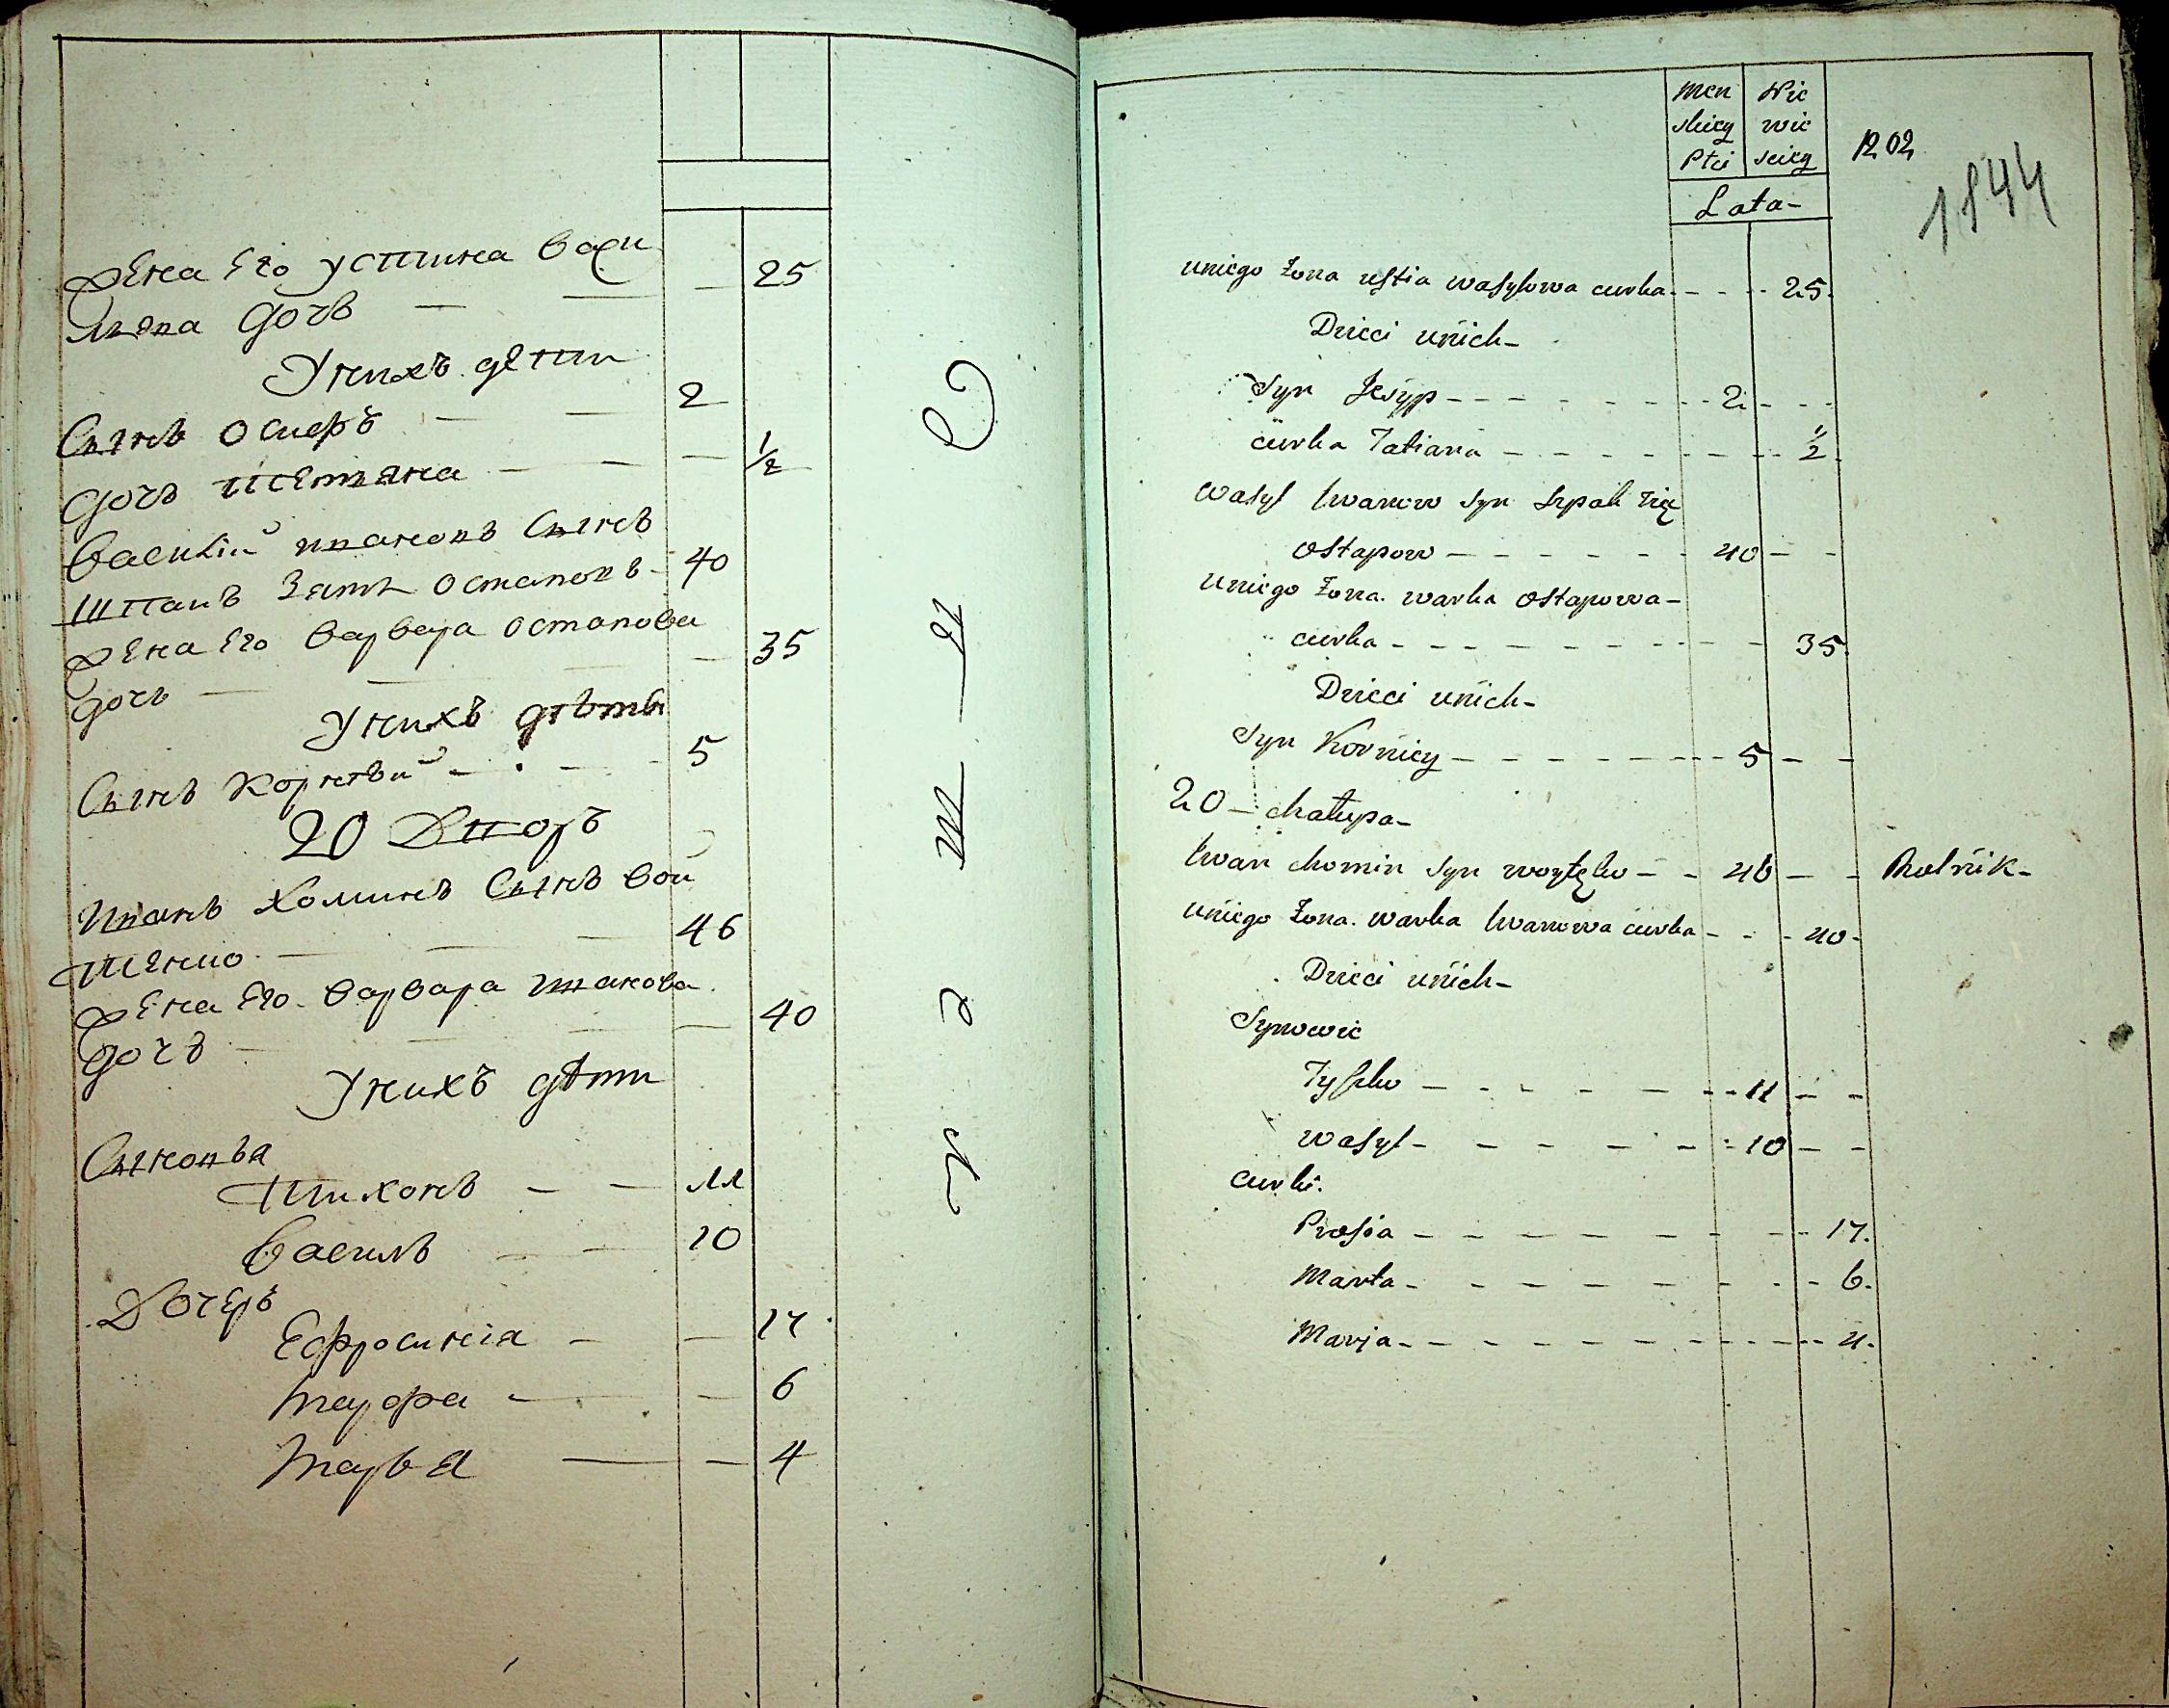 Жена Его Устина Васи
лѣва дочь — — — 25
У нихъ дети
Сынъ Осифъ — — 2
дочь Тетяна — — — 1/2
Василий Ивановъ Сынъ
Шпакъ Зять Остаповъ — 40
Жена Его Варвара Остапова
дочь — — — — 35
У нихъ дѣти
Сынъ Корнѣй — — 5
20 Дворъ
Иванъ Хоминъ Сынъ Вой
тенко — — — 46
Жена Его Варвара Иванова
дочь — — — — 40
У нихъ дѣти
Сыновья
Тихонъ — — 11
Василь — — 10
Дочерѣ
Ефросинія — — 17
Марфа — — 6
Марья — — 4
С
т
а
Men Nie
skiey wie
Płci sciey
Lata-
1202
1844
uniego Żona ustia wasylowa curka - - - 25.
Dzieci unich-
syn Jesyp - - - - - 2 - - -
curka Tatiana - - - - - 1/2.
Wasyl Iwanow syn Szpak Zię
Ostapow - - - - - 40 - -
uniego Żona warka Ostapowa-
curka - - - - - 35.
Dzieci unich-
Syn Korniey - - - - - 5 - -
20 - chałupa-
Iwan chomin syn woytęko - - 46 - - Rolnik-
uniego Żona warka Iwanowa curka - - - 40-
Dzieci unich-
Synowie
Tyszko - - - - - 11 - -
wasyl - - - - - 10 - -
curki.
Prosia - - - - - 17.
Marta - - - - - 6.
Marja - - - - - 4.